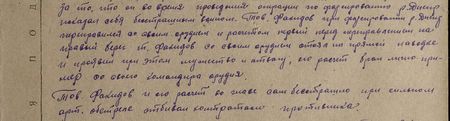 За то, что он во время проведения операции по форсированию р. Днепр
показал себя бесстрашным воином. Тов. Факидов при форсировании р. Днепр
переправился со своим орудием и расчетом первый перед переправлением на
правый берег т. Факидов со своим орудием стоял на прямой наводке
и проявил при этом мужество и отвагу, его расчет брал лично при-
мер со своего командира орудия.
Тов. Факидов и его расчет во главе сам бесстрашно при сильном
арт. обстреле отбивал контратаки противника.